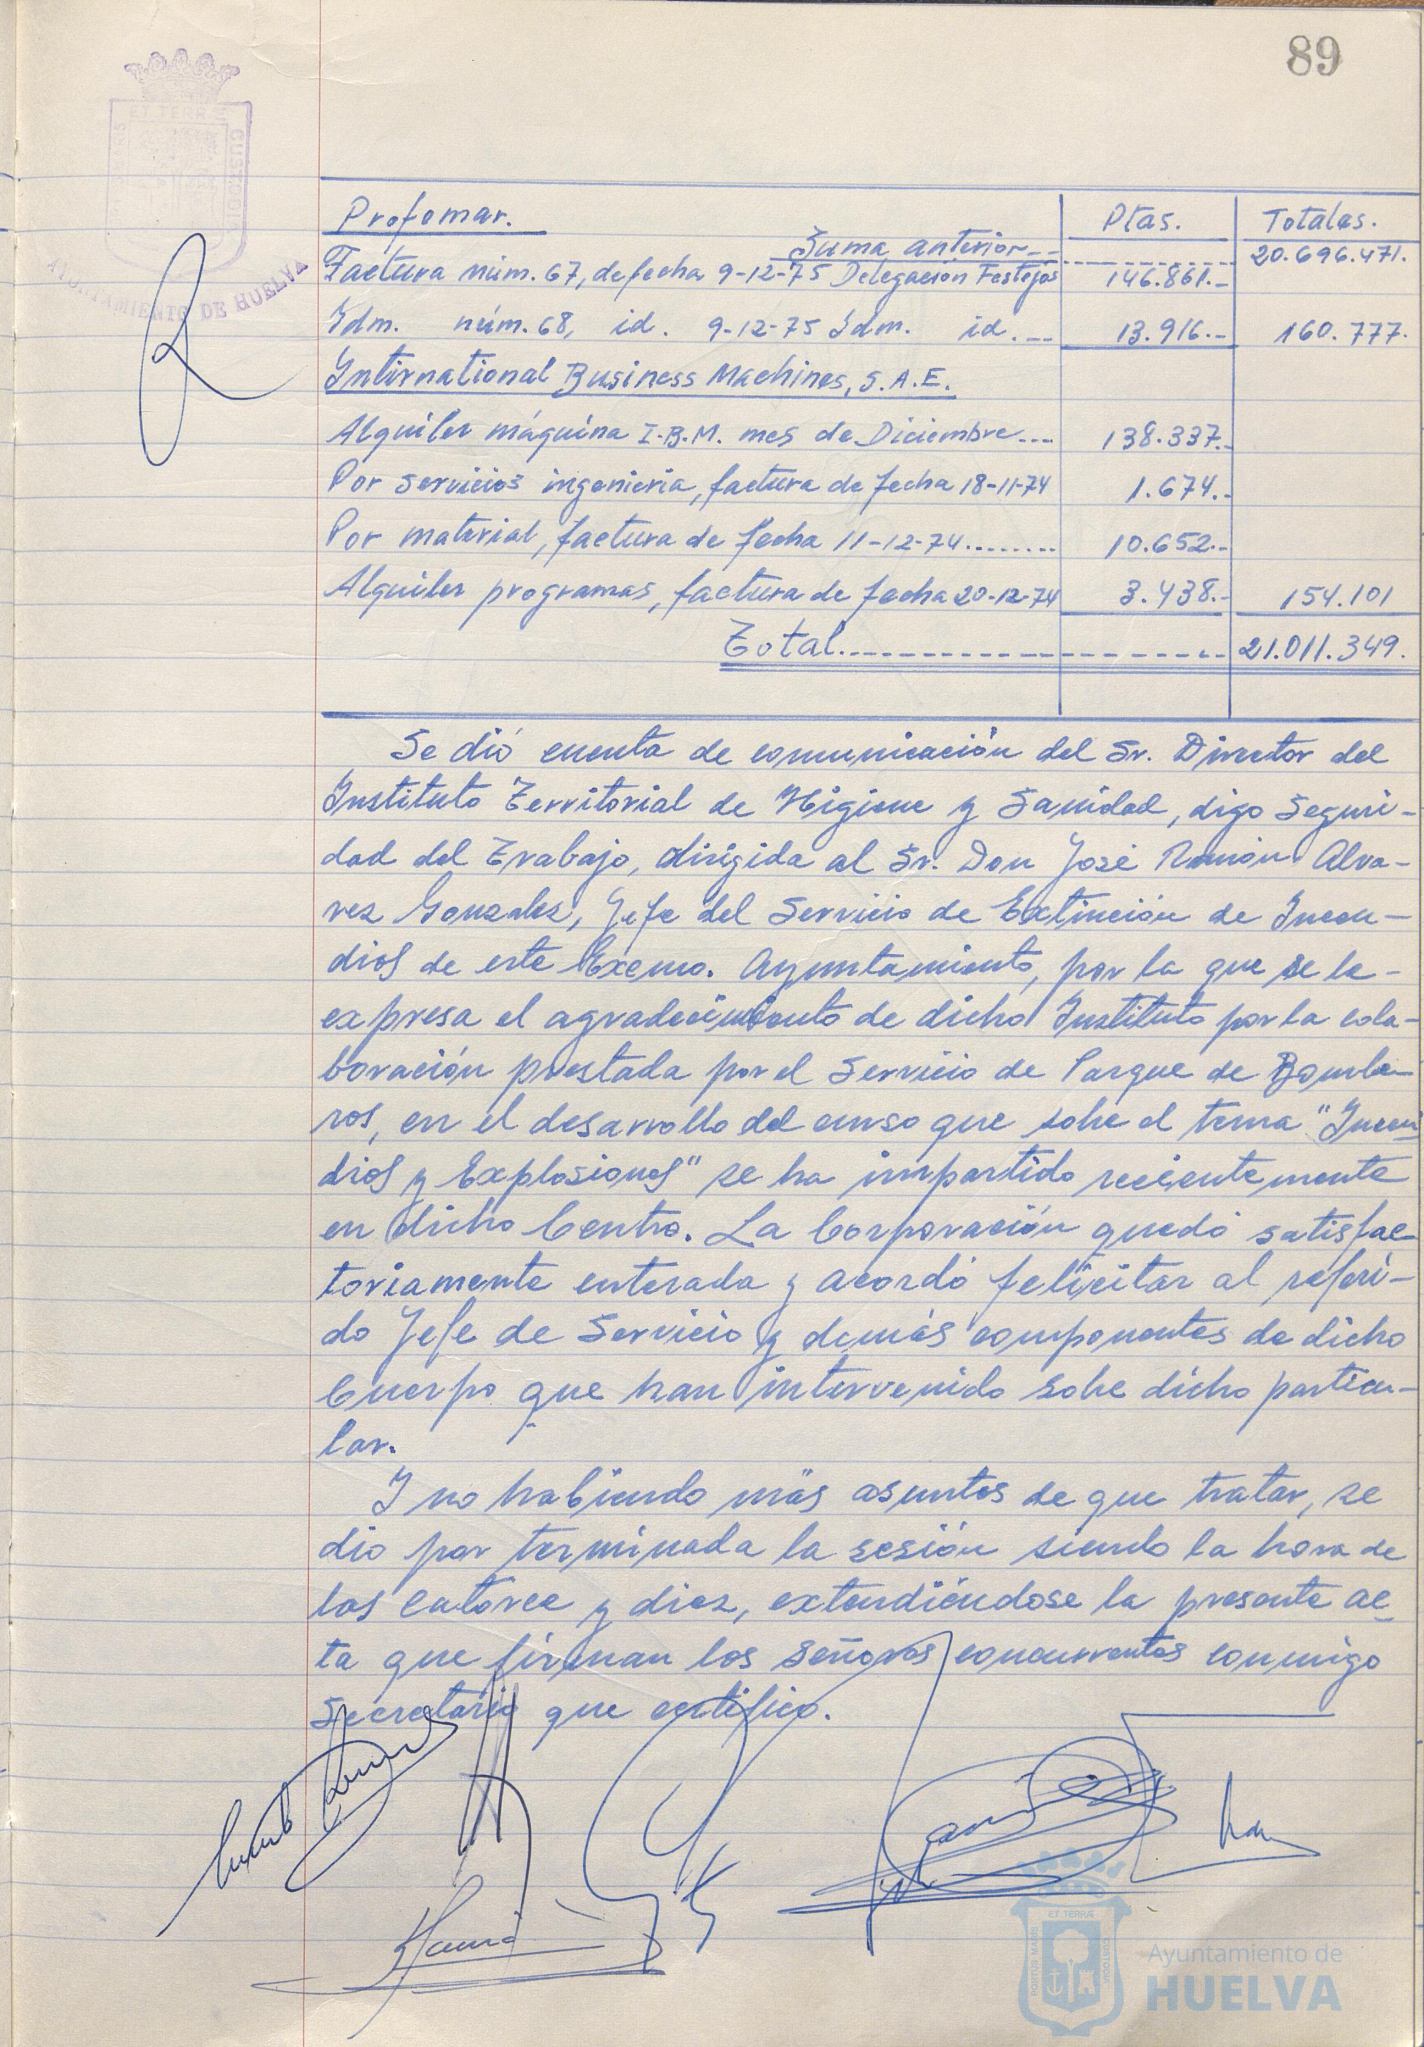 89
ET TERRÆ
CUSTODIA
AYUNTAMIENTO DE HUELVA
Profomar. Ptas. Totales.
Suma anterior 20.696.471.
Factura núm. 67, de fecha 9-12-75 Delegación Festejos 146.861.-
Idm. núm. 68, id. 9-12-75 Idm. id. 13.916.- 160.777.
International Business Machines, S.A.E.
Alquiler máquina I.B.M. mes de Diciembre.... 138.337.-
Por servicios ingenieria, factura de fecha 18-11-74 1.674.-
Por material, factura de fecha 11-12-74......... 10.652.-
Alquiler programas, factura de fecha 20-12-74 3.438.- 154.101
Total.------------------- 21.011.349.
Se dió cuenta de comunicación del Sr. Director del
Instituto Territorial de Higiene y Sanidad, digo Seguri-
dad del Trabajo, dirigida al Sr. Don José Ramón Alva-
rez Gonzalez, Jefe del Servicio de Extinción de Incen-
dios de este Excmo. Ayuntamiento, por la que se le-
expresa el agradecimiento de dicho Instituto por la cola-
boración prestada por el Servicio de Parque de Bombe-
ros, en el desarrollo del curso que sobre el tema "Incen-
dios y Explosiones" se ha impartido recientemente
en dicho Centro. La Corporación quedó satisfac-
toriamente enterada y acordó felicitar al referi-
do Jefe de Servicio y demás componentes de dicho
Cuerpo que han intervenido sobre dicho particu-
lar.
Y no habiendo más asuntos de que tratar, se
dio por terminada la sesión siendo la hora de
las catorce y diez, extendiéndose la presente ac-
ta que firman los Señores concurrentes conmigo
Secretario que certifico.
ET TERRÆ
PORTUS MARIS
CUSTODIA
Ayuntamiento de
HUELVA